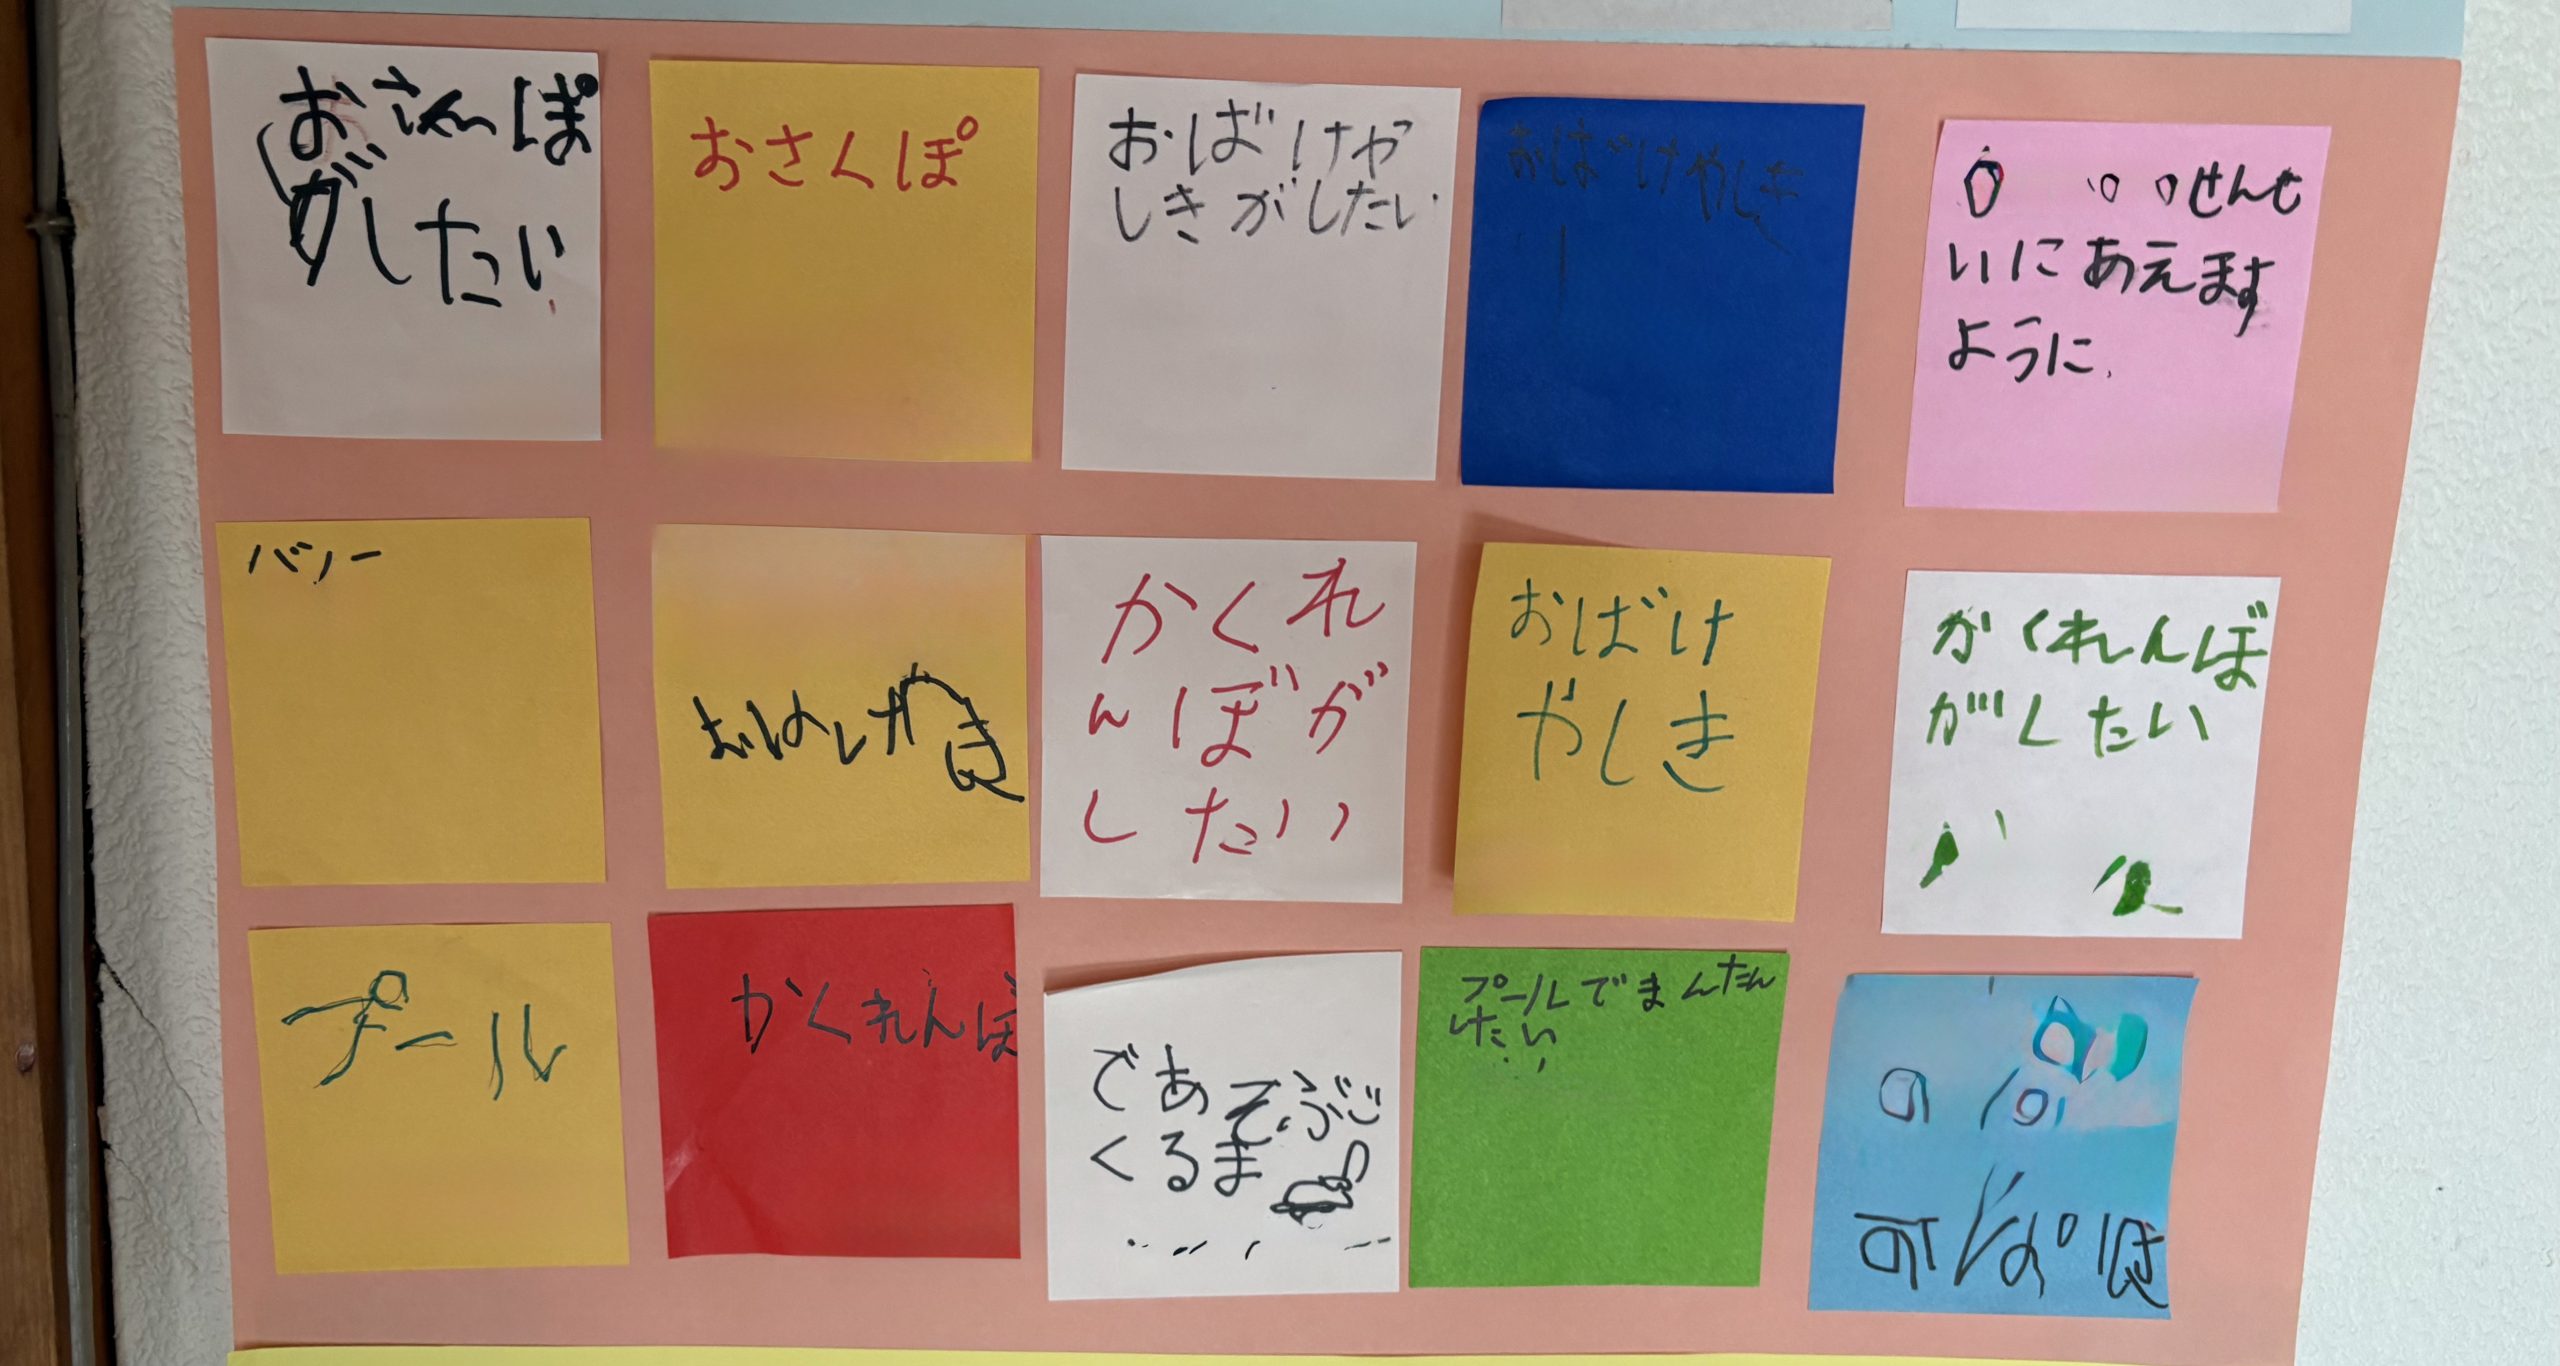 おさんぽ
がしたい
おさんぽ
おばけや
しきがしたい
おばけやしき
せんせ
いにあえます
ように
かくれ
んぼが
したい
おばけ
やしき
かくれんぼ
がしたい
プール
かくれんぼ
であそぶ
くるま
プールでまんたん
けたい